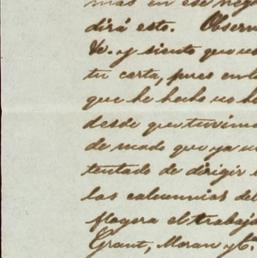 mas en ese neg
dirá esto. Observ
&c. y siento que no
tu carta, pues en la
que he hecho no h
desde que tuvimo
de modo que ya n
tentado de dirigir
las calumnias del
flogera el trabajo
Grant, Moran y C.